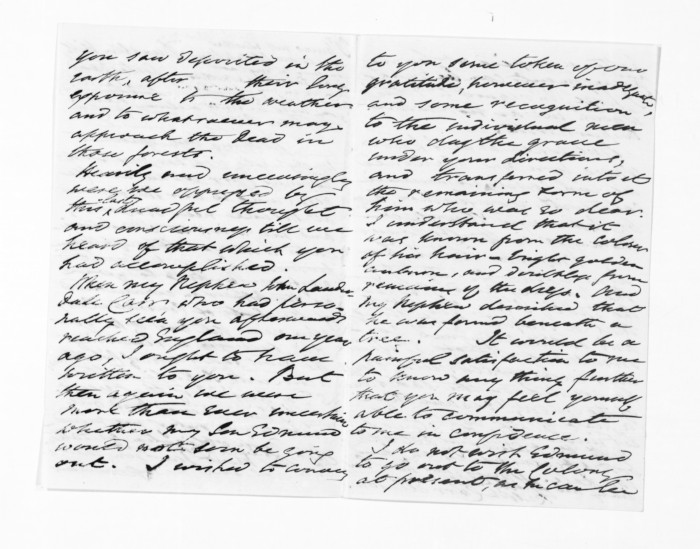 you saw deposited in the
earth, after their long
exposure to the weather
and to whatsoever may
approach the dead in
those forests.
Heavily and unceasingly
were we oppressed by
this last dreadful thought
and consciousness till we
heard of that which you
had accomplished.
When my Nephew Mr Lauder
dale Carr who had perso
nally seen you afterwards
reached England one year
ago, I ought to have
written to you. But
then again we were
more than ever uncertain
whether my Son Edmund
would not soon be going
out. I wished to convey
to you some token of our
gratitude, however inadequate,
and some recognition
to the individual men
who dug the grave
under your directions,
and transferred into it
the remaining form of
him who was so dear.
I understand that it
was known from the colour
of his hair - bright golden
auburn, and doubtless from
remains of the dress. And
my Nephew described that
he was found beneath a
tree. It would be a
painful satisfaction to me
to know any thing further
that you may feel yourself
able to communicate
to me in confidence.
I do not wish Edmund
to go out to the Colony
at present, as he can be